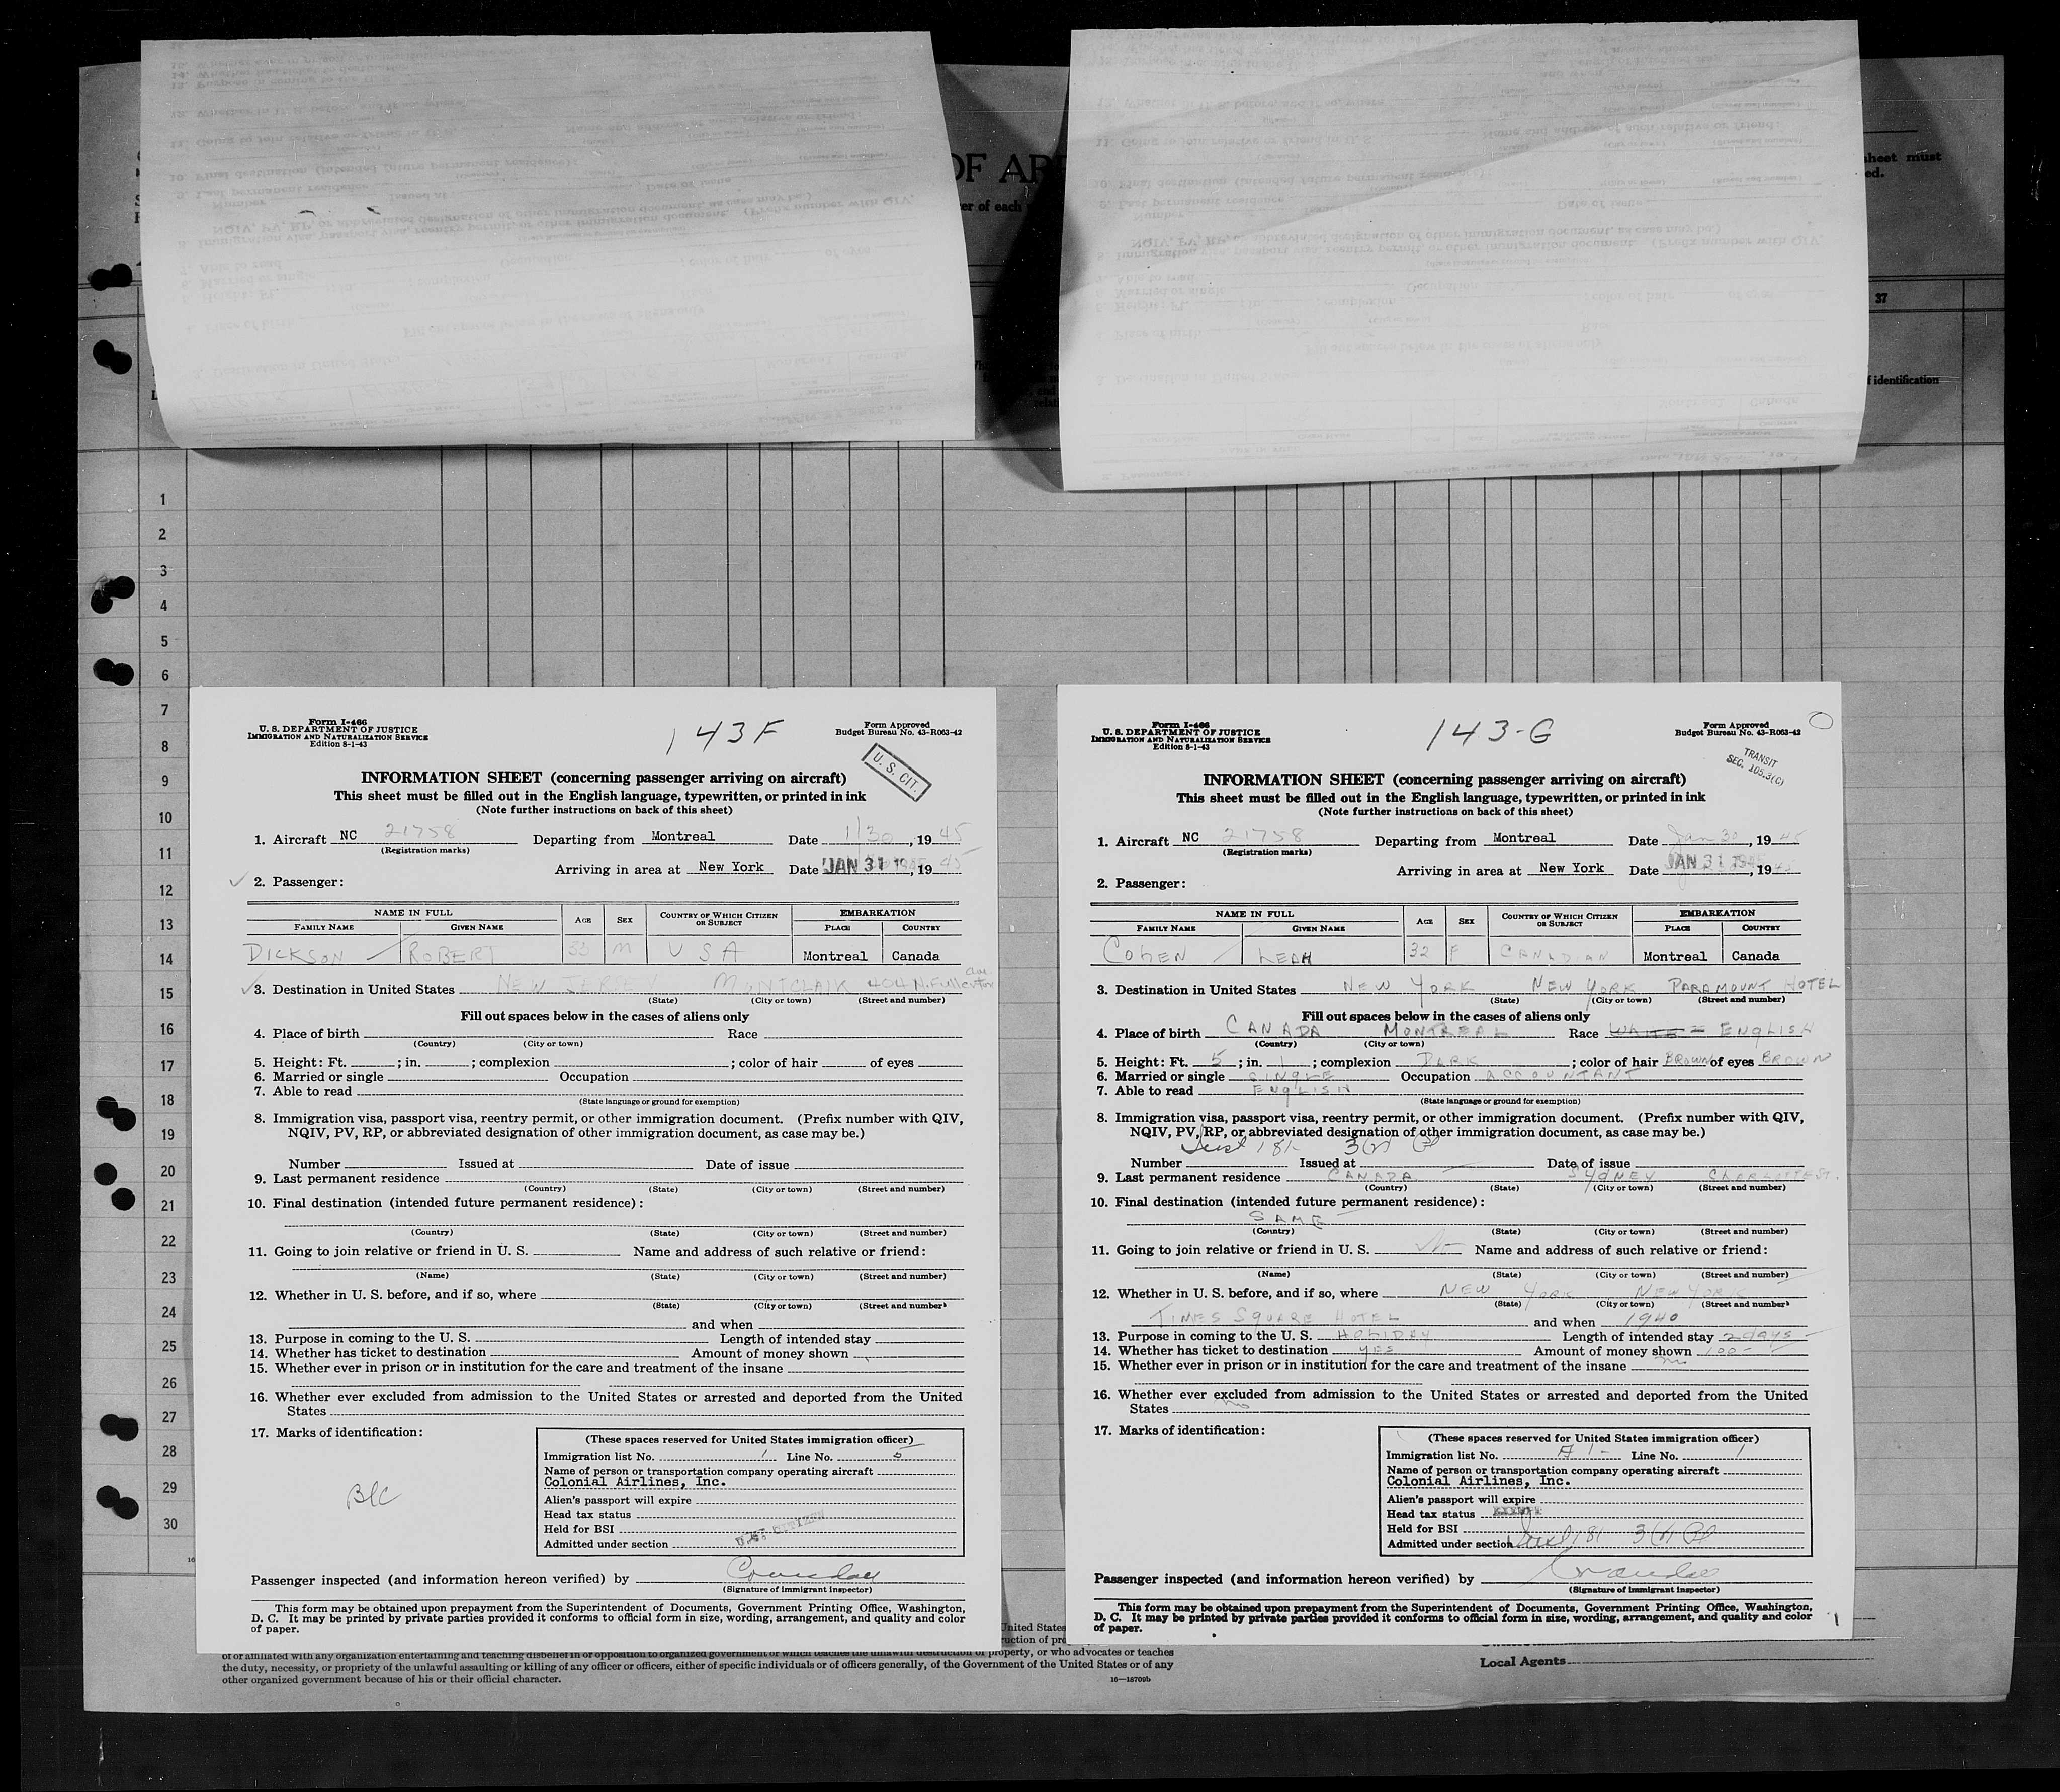 OF AR
sheet must
ed.
er of each
37
f identification
1
2
3
4
5
6
7
8
9
10
11
12
13
14
15
16
17
18
19
20
21
22
23
24
25
26
27
28
29
30
Form I-466
U. S. DEPARTMENT OF JUSTICE
IMMIGRATION AND NATURALIZATION SERVICE
Edition 8-1-43
143F
Form Approved
Budget Bureau No. 43-R063-42
U. S. CIT.
INFORMATION SHEET (concerning passenger arriving on aircraft)
This sheet must be filled out in the English language, typewritten, or printed in ink
(Note further instructions on back of this sheet)
1. Aircraft NC 21758 Departing from Montreal Date 1/30, 1945
(Registration marks)
Arriving in area at New York Date JAN 31 1945, 1945
2. Passenger:
NAME IN FULL AGE SEX COUNTRY OF WHICH CITIZEN OR SUBJECT EMBARKATION
FAMILY NAME GIVEN NAME PLACE COUNTRY
DICKSON ROBERT M USA Montreal Canada
3. Destination in United States NEW JERSEY MONTCLAIR 404 N. Fullerton Ave
(State) (City or town) (Street and number)
Fill out spaces below in the cases of aliens only
4. Place of birth Race
(Country) (City or town)
5. Height: Ft. ; in. ; complexion ; color of hair of eyes
6. Married or single Occupation
7. Able to read
(State language or ground for exemption)
8. Immigration visa, passport visa, reentry permit, or other immigration document. (Prefix number with QIV,
NQIV, PV, RP, or abbreviated designation of other immigration document, as case may be.)
Number Issued at Date of issue
9. Last permanent residence
(Country) (State) (City or town) (Street and number)
10. Final destination (intended future permanent residence):
(Country) (State) (City or town) (Street and number)
11. Going to join relative or friend in U. S. Name and address of such relative or friend:
(Name) (State) (City or town) (Street and number)
12. Whether in U. S. before, and if so, where
(State) (City or town) (Street and number)
and when
13. Purpose in coming to the U. S. Length of intended stay
14. Whether has ticket to destination Amount of money shown
15. Whether ever in prison or in institution for the care and treatment of the insane
16. Whether ever excluded from admission to the United States or arrested and deported from the United
States
17. Marks of identification:
B/C
(These spaces reserved for United States immigration officer)
Immigration list No. 1 Line No. 5
Name of person or transportation company operating aircraft
Colonial Airlines, Inc.
Alien's passport will expire
Head tax status
Held for BSI
Admitted under section U.S. CITIZEN
Passenger inspected (and information hereon verified) by
(Signature of immigrant inspector)
This form may be obtained upon prepayment from the Superintendent of Documents, Government Printing Office, Washington,
D. C. It may be printed by private parties provided it conforms to official form in size, wording, arrangement, and quality and color
of paper.
Form I-466
U. S. DEPARTMENT OF JUSTICE
IMMIGRATION AND NATURALIZATION SERVICE
Edition 8-1-43
143-G
Form Approved
Budget Bureau No. 43-R063-42
TRANSIT
SEC. 105.3(C)
INFORMATION SHEET (concerning passenger arriving on aircraft)
This sheet must be filled out in the English language, typewritten, or printed in ink
(Note further instructions on back of this sheet)
1. Aircraft NC 21758 Departing from Montreal Date Jan 30, 1945
(Registration marks)
Arriving in area at New York Date JAN 31 1945, 1945
2. Passenger:
NAME IN FULL AGE SEX COUNTRY OF WHICH CITIZEN OR SUBJECT EMBARKATION
FAMILY NAME GIVEN NAME PLACE COUNTRY
COHEN LEAH 32 F CANADIAN Montreal Canada
3. Destination in United States NEW YORK NEW YORK PARAMOUNT HOTEL
(State) (City or town) (Street and number)
Fill out spaces below in the cases of aliens only
4. Place of birth CANADA MONTREAL Race WHITE ENGLISH
(Country) (City or town)
5. Height: Ft. 5 ; in. 1 ; complexion DARK ; color of hair BROWN of eyes BROWN
6. Married or single SINGLE Occupation ACCOUNTANT
7. Able to read ENGLISH
(State language or ground for exemption)
8. Immigration visa, passport visa, reentry permit, or other immigration document. (Prefix number with QIV,
NQIV, PV, RP, or abbreviated designation of other immigration document, as case may be.)
Number Issued at Date of issue
9. Last permanent residence CANADA SYDNEY CHARLOTTE ST.
(Country) (State) (City or town) (Street and number)
10. Final destination (intended future permanent residence):
SAME
(Country) (State) (City or town) (Street and number)
11. Going to join relative or friend in U. S. No Name and address of such relative or friend:
(Name) (State) (City or town) (Street and number)
12. Whether in U. S. before, and if so, where NEW YORK NEW YORK
(State) (City or town) (Street and number)
TIMES SQUARE HOTEL and when 1940
13. Purpose in coming to the U. S. HOLIDAY Length of intended stay 2 days
14. Whether has ticket to destination YES Amount of money shown 100-
15. Whether ever in prison or in institution for the care and treatment of the insane no
16. Whether ever excluded from admission to the United States or arrested and deported from the United
States no
17. Marks of identification:
(These spaces reserved for United States immigration officer)
Immigration list No. A 1- Line No. 1
Name of person or transportation company operating aircraft
Colonial Airlines, Inc.
Alien's passport will expire
Head tax status EXEMPT
Held for BSI
Admitted under section
Passenger inspected (and information hereon verified) by
(Signature of immigrant inspector)
This form may be obtained upon prepayment from the Superintendent of Documents, Government Printing Office, Washington,
D. C. It may be printed by private parties provided it conforms to official form in size, wording, arrangement, and quality and color
of paper.
United States
uction of pro
of or affiliated with any organization entertaining and teaching disbelief in or opposition to organized government or which teaches the unlawful destruction of property, or who advocates or teaches
the duty, necessity, or propriety of the unlawful assaulting or killing of any officer or officers, either of specific individuals or of officers generally, of the Government of the United States or of any
other organized government because of his or their official character.
16—18709b
Local Agents